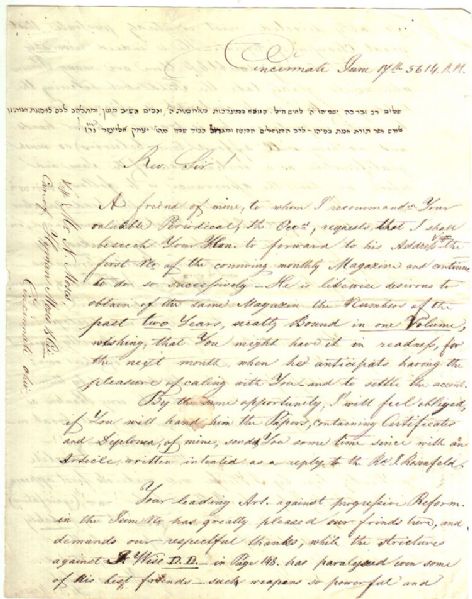 Cincinnati June 17th 5614. A.M.
Rev. Sir!
A friend of mine, to whom I recommended Your
valuable Periodical, the Occt, requests that I shall
beseech Your Hon. to forward to his Address the
first No of the comming monthly Magazin and continue
to do so sucessively – He is likewise desirous to
obtain of the same Magazin the Numbers of the
past two Years, neatly Bound in one Volume,
wishing, that You might have it in readness, for
the next month, when he anticipats having the
pleasure of caling with You and to settle the accout.
By the same opportunity, I will feel obliged,
if You will hand him the Papers, containing Certificates
and Diploma, of mine, send You some time since with an
Article, written intented as a reply to the Mr I.
Your leading Art. against progressive Reform
in the June No has greatly pleased our frinds here, and
demands our respectful thanks, while the strictures
against Wise D.D. – in Page 148. has paralysed even some
of his best friends – such weapons so powerful and
Mr. N.
Care of Hyman &
Cincinnati Ohio.